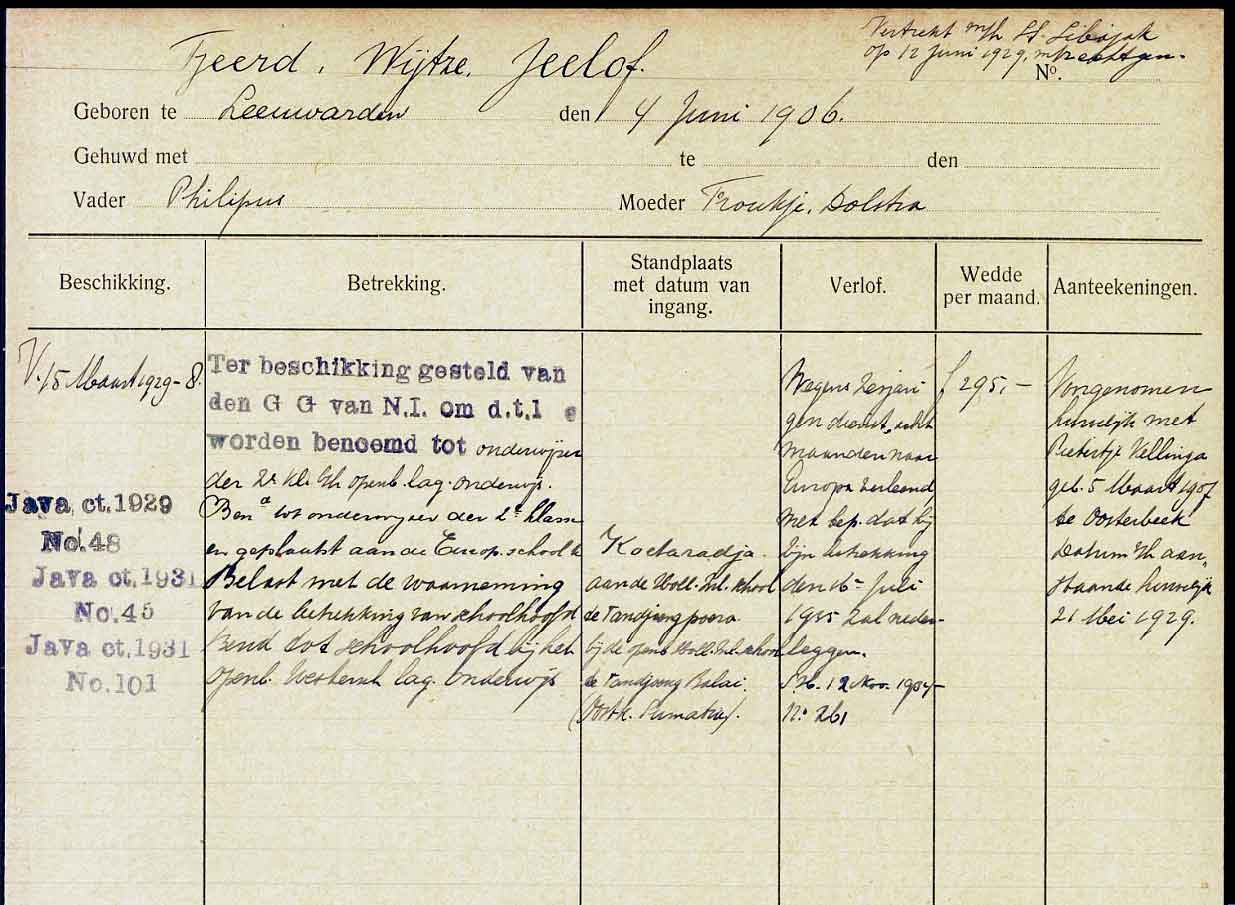 Tjeerd, Wijtze, Jeelof.
Vertrekt m/h SS. Sibajak
op 12 Juni 1929,
No.
Geboren te Leeuwarden den 4 Juni 1906.
Gehuwd met te den
Vader Philipus Moeder Froukje, Dolstra
Beschikking.
Betrekking.
Standplaats
met datum van
ingang.
Verlof.
Wedde
per maand.
Aanteekeningen.
V. 15 Maart 1929 - 8.
Java ct. 1929
No. 48
Java ct. 1931
No. 45
Java ct. 1931
No. 101
Ter beschikking gesteld van
den G G van N.I. om d.t.l e
worden benoemd tot onderwijzer
der 2e kl. b/h openb. lag. onderwijs.
Ben d tot onderwijzer der 2e klasse
en geplaatst aan de Europ. school te
Belast met de waarneming
van de betrekking van schoolhoofd
Bend tot schoolhoofd bij het
openb. Westersch lag. onderwijs
Koetaradja.
aan de Holl. Inl. school
te Tandjong poera.
bij de openb. Holl. Inl. school
te Tandjong Balai.
(Oostk. Sumatra).
Wegens zesjari-
gen dienst, acht
maanden naar
Europa verleend
met bep. dat hij
zijn betrekking
den 16n Juli
1935 zal neder-
leggen.
12 Nov. 1934
No. 261
f 295,-
Voorgenomen
huwelijk met
Pietertje Vellinga
geb. 5 Maart 1907
te Oosterbeek
Datum v/h aan-
staande huwelijk
21 Mei 1929.